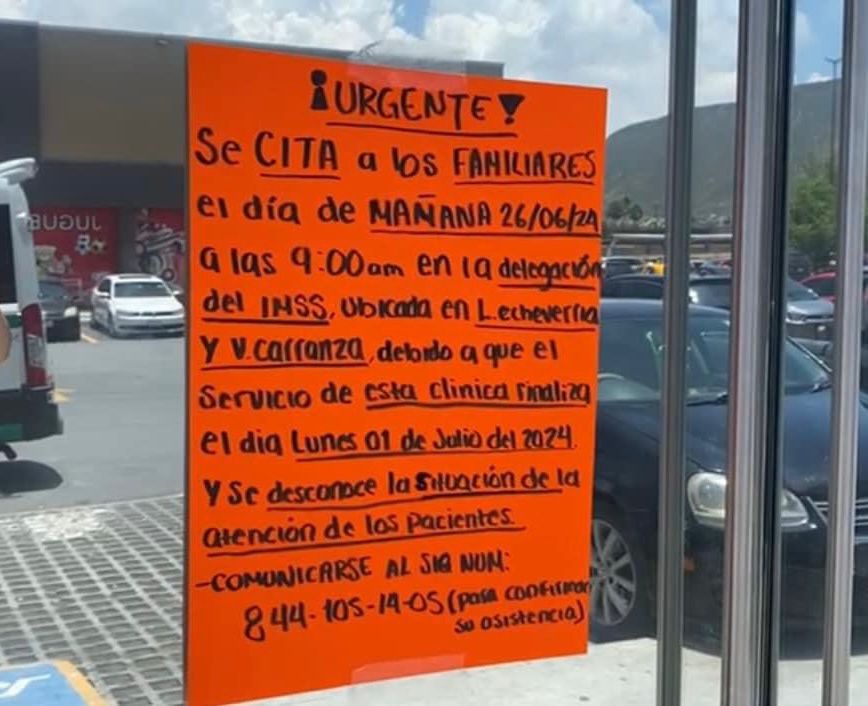 ¡URGENTE!
Se CITA a los FAMILIARES
el día de MAÑANA 26/06/24
a las 9:00am en la delegación
del IMSS, Ubicada en L.echeverria
Y V.carranza, debido a que el
Servicio de esta clinica Finaliza
el dia Lunes 01 de Julio del 2024.
Y Se desconoce la situación de la
atención de los Pacientes.
-COMUNICARSE AL SIG NUM:
844-105-14-05 (para confirmar
su asistencia)